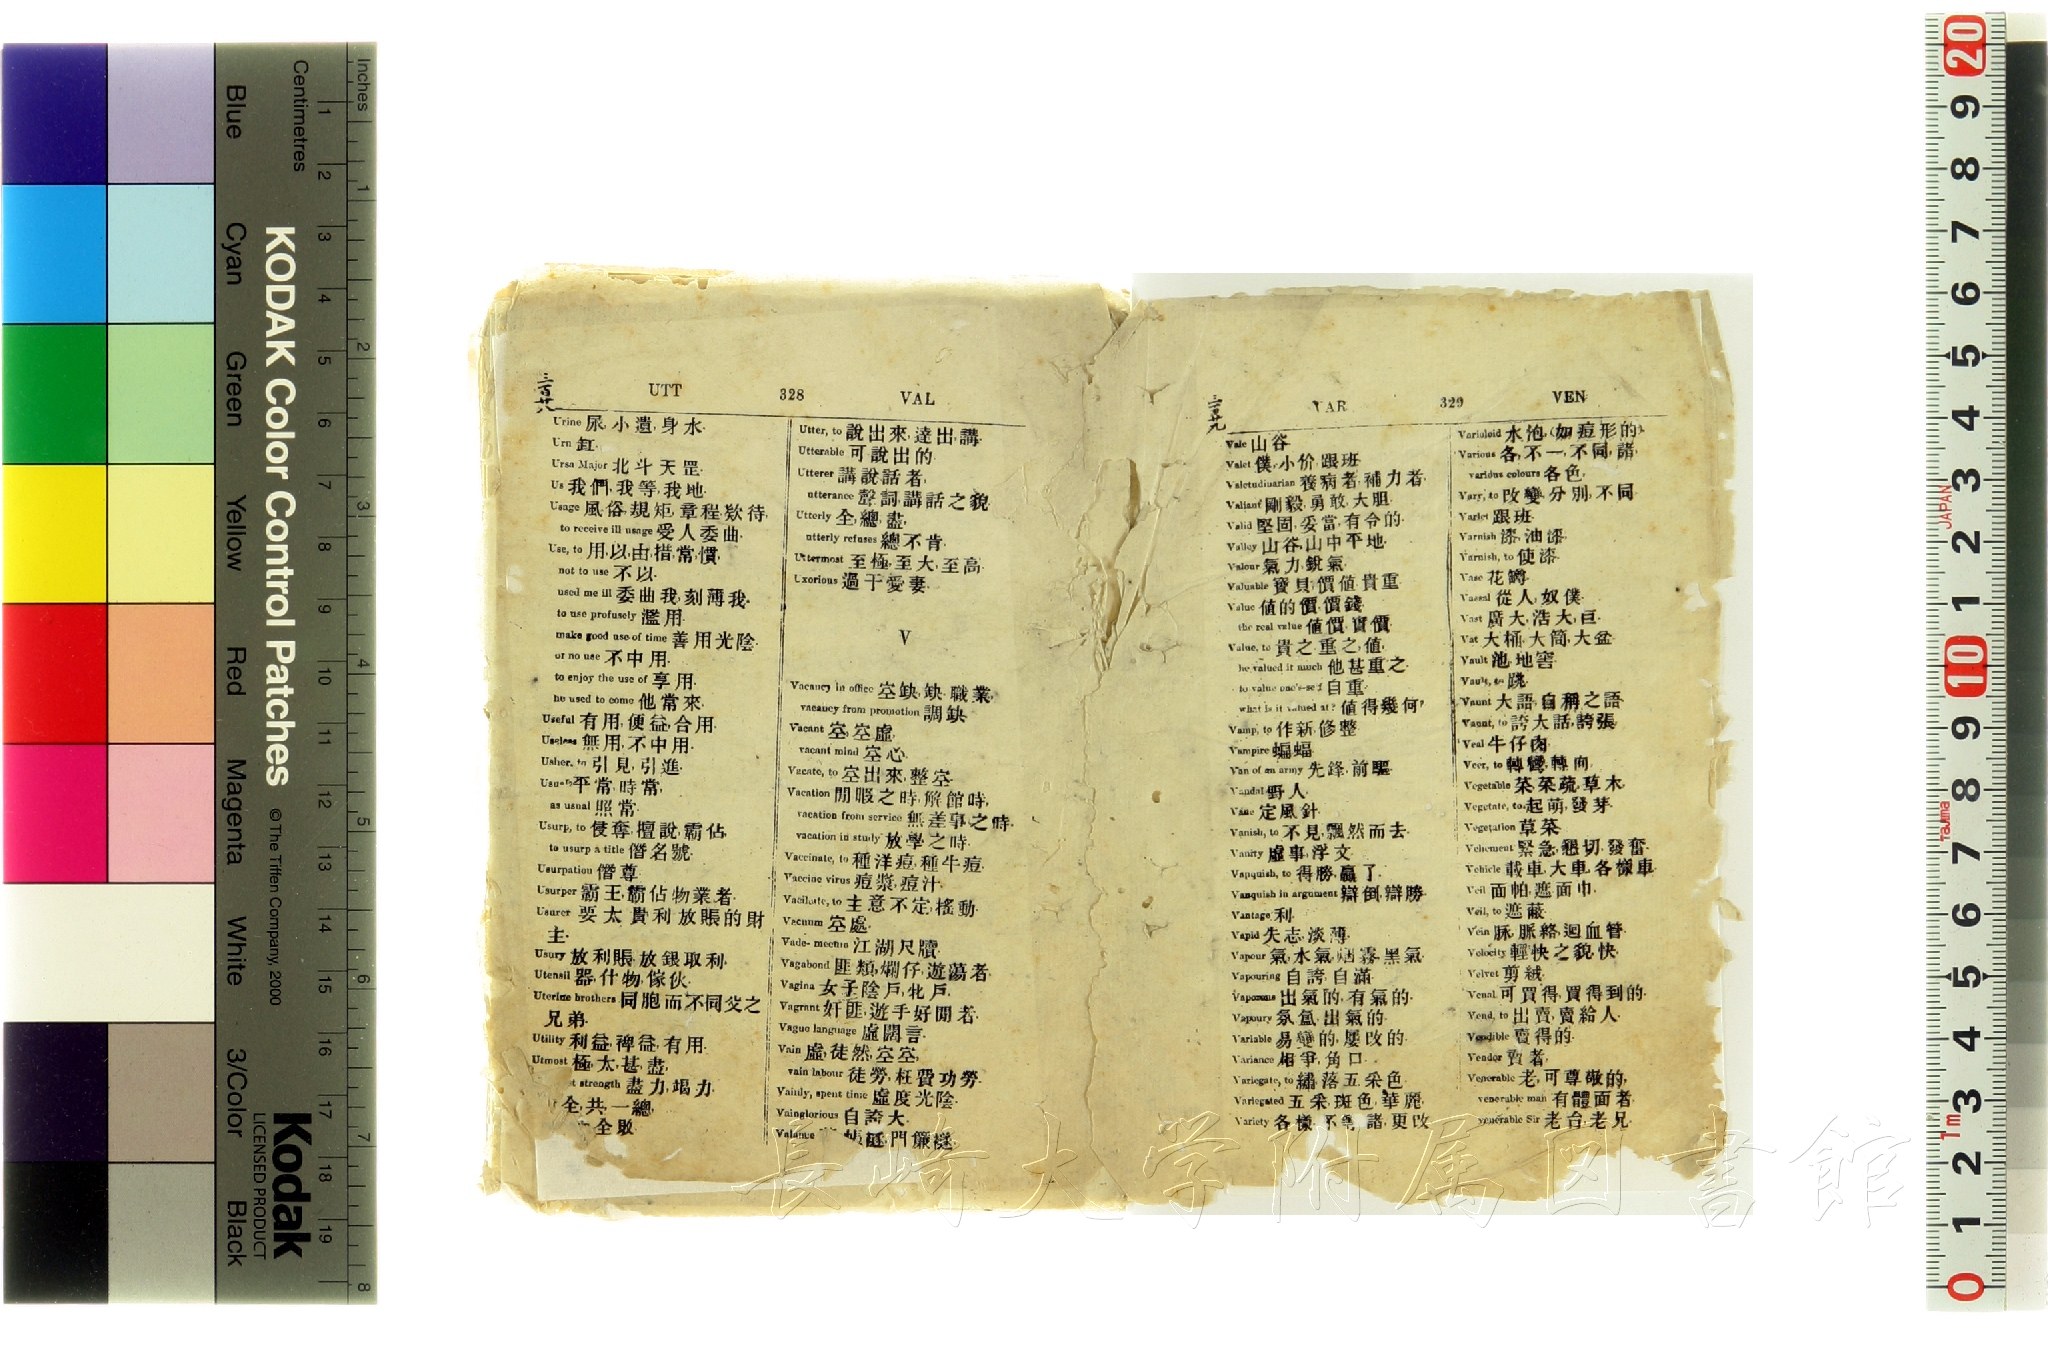 Inches
Centimetres
KODAK Color Control Patches © The Tiffen Company, 2000
Blue
Cyan
Green
Yellow
Red
Magenta
White
3/Color
Black
Kodak
LICENSED PRODUCT
三百廿八
UTT 328 VAL
Urine 尿,小遺,身水.
Urn 缸.
Ursa Major 北斗天罡.
Us 我們,我等,我地.
Usage 風俗,規矩,章程,欵待,
to receive ill usage 受人委曲.
Use, to 用,以,由,措,常,慣,
not to use 不以.
used me ill 委曲我,刻薄我.
to use profusely 濫用.
make good use of time 善用光陰.
or no use 不中用.
to enjoy the use of 享用.
he used to come 他常來.
Useful 有用,便益,合用.
Useless 無用,不中用.
Usher, to 引見,引進.
平常,時常,
as usual 照常.
Usurp, to 侵奪,擅說,霸佔,
to usurp a title 僭名號.
Usurpation 僭尊.
Usurper 霸王,霸佔物業者.
Usurer 要太貴利放賬的財
主.
Usury 放利賬,放銀取利.
Utensil 器,什物,傢伙.
Uterine brothers 同胞而不同父之
兄弟.
Utility 利益,裨益,有用.
Utmost 極,太,甚,盡,
strength 盡力,竭力.
全,共,一總,
全敗
Utter, to 說出來,達出,講.
Utterable 可說出的.
Utterer 講說話者,
utterance 聲詞,講話之貌.
Utterly 全,總,盡,
utterly refuses 總不肯.
Uttermost 至極,至大,至高.
Uxorious 過于愛妻.
V
Vacancy in office 空缺,缺,職業,
vacancy from promotion 調缺.
Vacant 空,空虛,
vacant mind 空心.
Vacate, to 空出來,整空.
Vacation 閒暇之時,解館時,
vacation from service 無差事之時.
vacation in study 放學之時.
Vaccinate, to 種洋痘,種牛痘.
Vaccine virus 痘漿,痘汁.
Vacillate, to 主意不定,搖動.
Vacuum 空處.
Vade-mecum 江湖尺牘.
Vagabond 匪類,爛仔,遊蕩者.
Vagina 女子陰戶,牝戶.
Vagrant 奸匪,遊手好閒者.
Vague language 虛闊言.
Vain 虛,徒然,空空,
vain labour 徒勞,枉費功勞.
Vainly, spent time 虛度光陰.
Vainglorious 自誇大.
Valance 門簾
三百廿九
VAR 329 VEN
Vale 山谷.
Valet 僕,小价,跟班.
Valetudinarian 養病者,補力者.
Valiant 剛毅,勇敢,大胆.
Valid 堅固,妥當,有令的.
Valley 山谷,山中平地.
Valour 氣力,銳氣.
Valuable 寶貝,價值,貴重.
Value 値的價,價錢,
the real value 値價,實價.
Value, to 貴之,重之,値.
he valued it much 他甚重之.
to value one's-self 自重.
what is it valued at? 値得幾何?
Vamp, to 作新,修整.
Vampire 蝙蝠.
Van of an army 先鋒,前驅.
Vandal 野人.
Vane 定風針.
Vanish, to 不見,飄然而去.
Vanity 虛事,浮文.
Vanquish, to 得勝,贏了.
Vanquish in argument 辯倒,辯勝.
Vantage 利.
Vapid 失志,淡薄.
Vapour 氣,水氣,烟霧,黑氣.
Vapouring 自誇,自滿.
Vaporous 出氣的,有氣的.
Vapoury 氛氳,出氣的.
Variable 易變的,屡改的.
Variance 相爭,角口.
Variegate, to 繡,落五采色.
Variegated 五采,斑色,華麗.
Variety 各樣,不 諸,更改
Varioloid 水泡,(如痘形的).
Various 各,不一,不同,諸,
various colours 各色.
Vary, to 改變,分別,不同.
Varlet 跟班.
Varnish 漆,油漆.
Varnish, to 使漆.
Vase 花鱒.
Vassal 從人,奴僕.
Vast 廣大,浩大,巨.
Vat 大桶,大筒,大盆.
Vault 池,地窖.
Vault, to 跳.
Vaunt 大語,自稱之語.
Vaunt, to 誇大話,誇張.
Veal 牛仔肉.
Veer, to 轉彎,轉向.
Vegetable 菜,菜蔬,草木,
Vegetate, to 起萌,發芽.
Vegetation 草菜.
Vehement 緊急,懇切,發奮.
Vehicle 載車,大車,各樣車.
Veil 面帕,遮面巾.
Veil, to 遮蔽.
Vein 脉,脈絡,迴血管.
Velocity 輕快之貌,快.
Velvet 剪絨.
Venal 可買得,買得到的.
Vend, to 出賣,賣給人.
Vendible 賣得的.
Vendor 賣者.
Venerable 老,可尊敬的,
venerable man 有體面者.
venerable Sir 老台,老兄.
長崎大学附属図書館
JAPAN
Tajima
1m